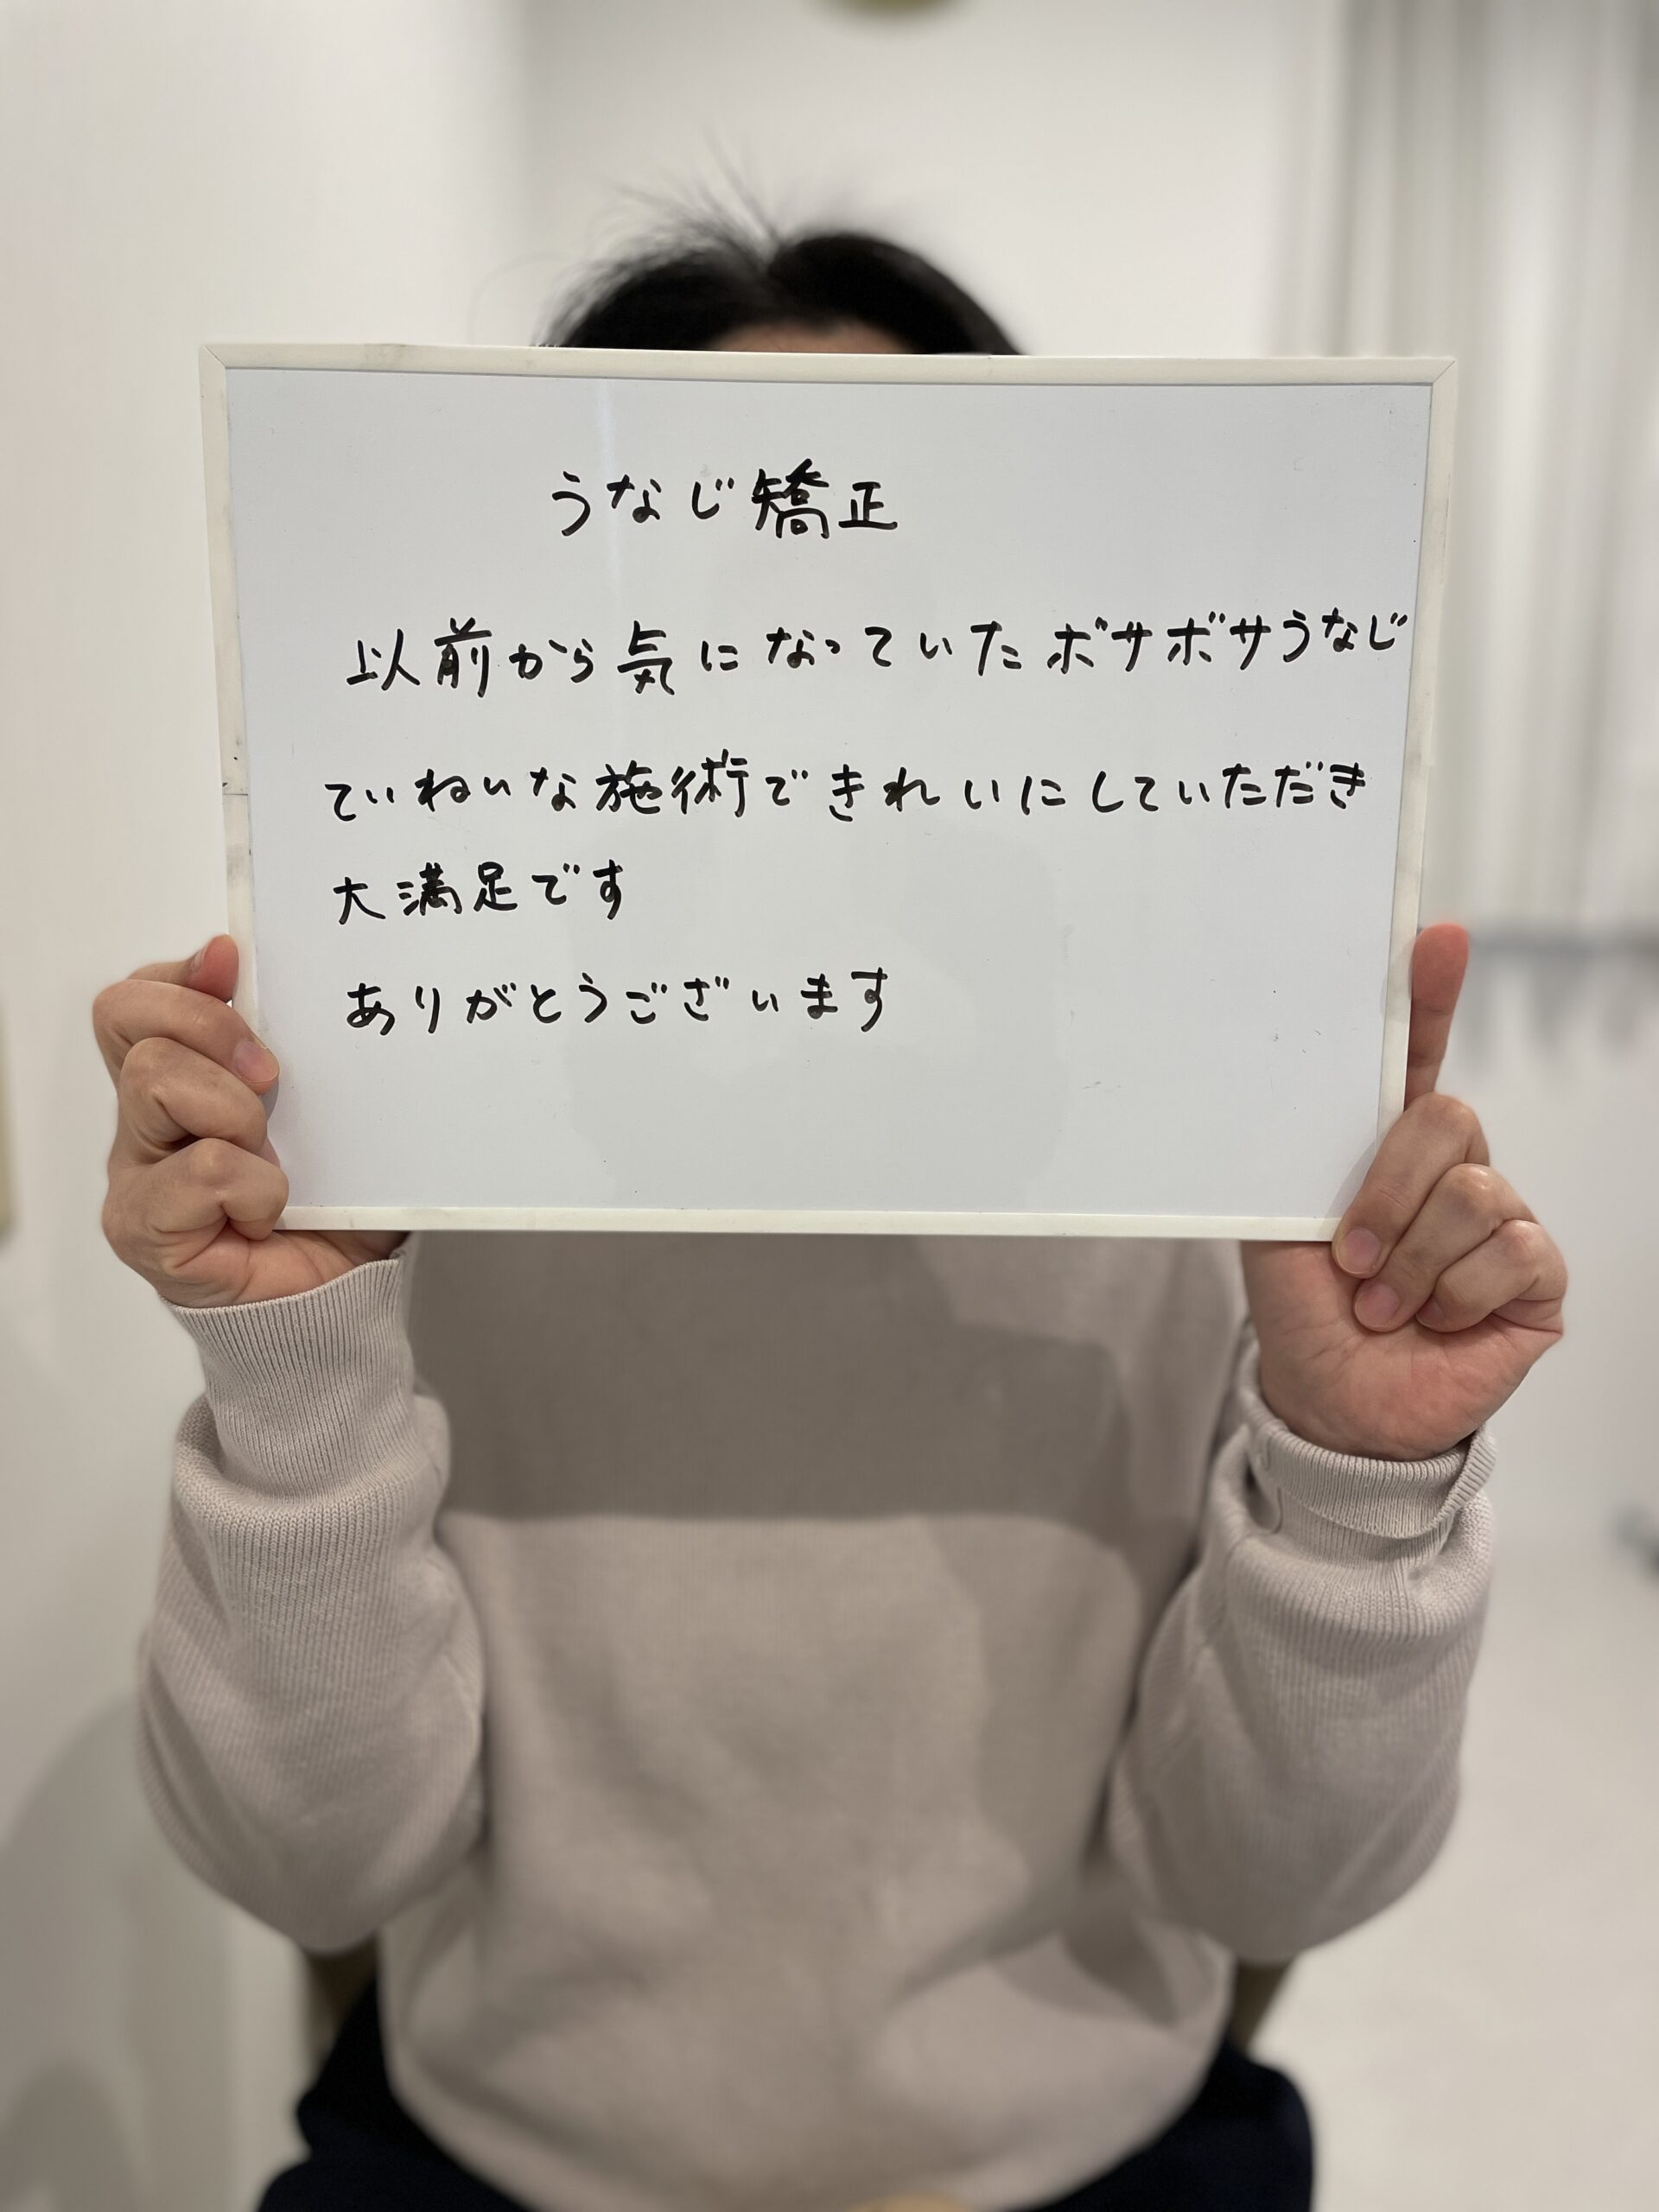 うなじ矯正
以前から気になっていたボサボサうなじ
ていねいな施術できれいにしていただき
大満足です
ありがとうございます